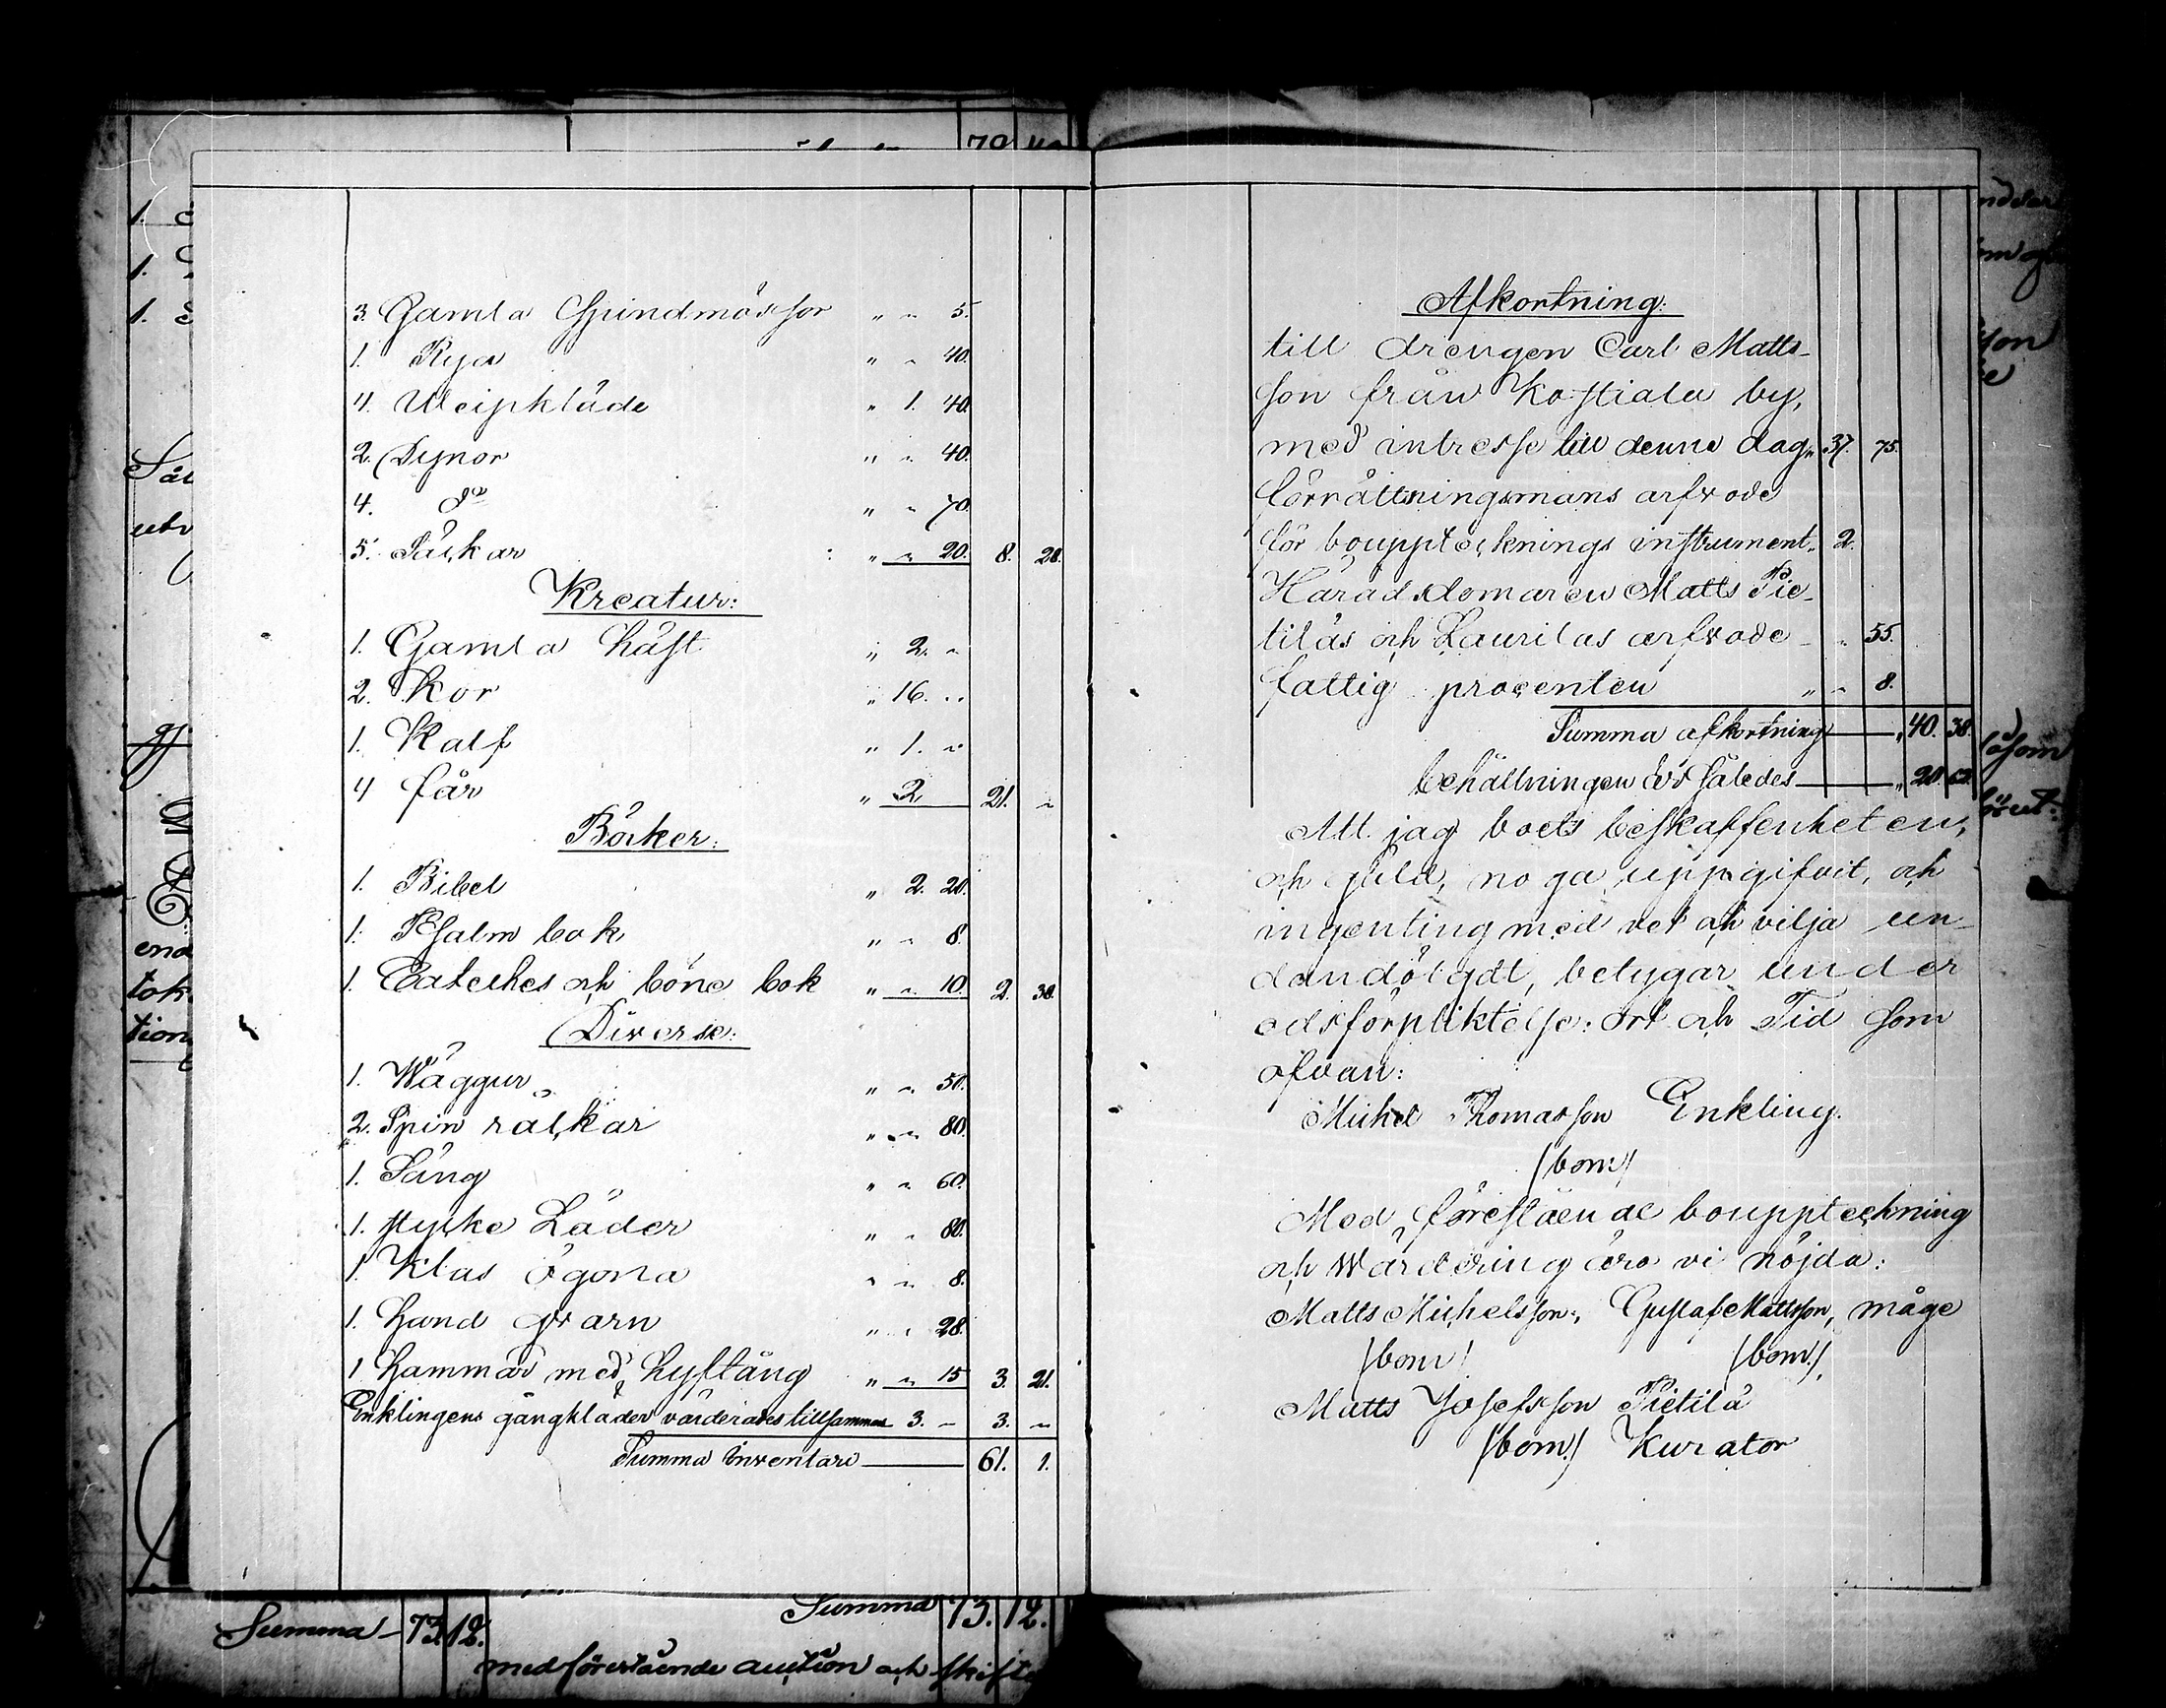 3. Gamla Spindmössor " " 5.
1. Rya " " 40.
4. Weipkläde " 1. 40.
2. Dynor " " 40.
4. d:o " " 70.
5. Säckar " " 20. 8. 28.
Kreatur:
1. Gamla häst " 2. "
2. Kor " 16. "
1. Kalf " 1. "
4 får " 2. 21. "
Böcker:
1. Bibel " 2. 20.
1. Psalm bok " " 8.
1. Cateches och böne bok " " 10. 2. 38.
Diverse:
1. Waggur " " 50.
2. Spin råckar " " 80.
1. Säng " " 60.
1. stycke Läder " " 80.
1. Klas ögona " " 8.
1. hand qvarn " " 28.
1 hammar med hyftång " " 15 3. 21.
Enklingens gångkläder värderades tillsammans 3. – 3. "
Summa inventarie 61. 1.
Afkortning:
till drengen Carl Matts-
son från Kostiala by,
med intresse till denne dag " 37. 75.
förrättningsmans arfvode
för bouppteknings instrument " 2.
Häradsdomaren Matts Pie-
tiläs och Laurilas arfvode – " 55.
fattig procenten " " 8.
Summa afkortning " 40. 38.
behållningen är således " 20. 63.
Att jag boets beskaffenheten,
och gäld, noga uppgifvit, och
ingenting med vet och vilja un-
dandölgdt, betygar under
edsförpliktelse: Ort och Tid som
ofvan:
Michel Thomasson Enkling.
/bom:/
Med föreståen de bouppteckning
och wärdering äro vi nöjda:
Matts Michelsson, Gustaf Mattsson, måge
/bom/ /bom:/
Matts Josefsson Pietilä
/bom:/ Kurator
Summa 73. 12.
Summa – 73 12.
med förestående auction och skifte